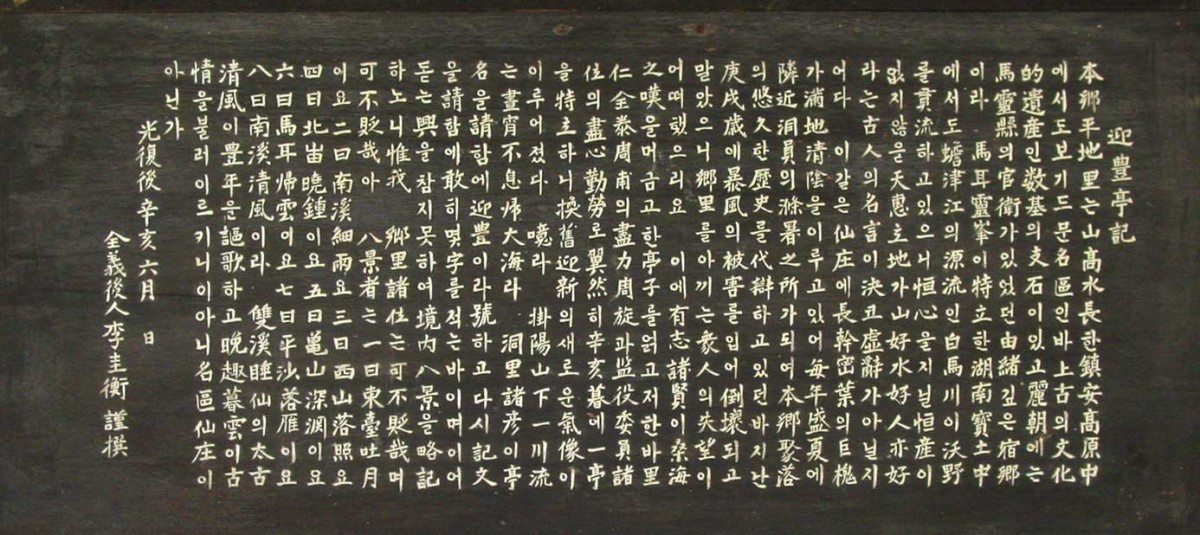 迎豊亭記
本鄕平地里는山高水長한鎮安高原中
에서도보기드문名區인바上古의文化
的遺産인数基의支石이있고麗朝에는
馬靈縣의官衙가있었던由緖깊은宿鄕
이라 馬耳靈峯이特立한湖南寶土中
에서도蟾津江의源流인白馬川이沃野
를貫流하고있으니恒心을지닐恒産이
없지않을天惠主地가山好水好人亦好
라는古人의名言이決코虛辭가아닐지
어다 이같은仙庄에長幹密葉의巨槐
가滿地清陰을이루고있어每年盛夏에
隣近洞員의滌暑之所가되여本鄕聚落
의悠久한歷史를代辯하고있던바지난
庚戌歲에暴風의被害를입어倒壞되고
말았으니鄕里를아끼는衆人의失望이
어떠했으리요 이에有志諸賢이桑海
之嘆을머금고한亭子를읽고저한바里
仁全泰周甫의盡力周旋과監役委員諸
位의盡心勤勞로翼然히辛亥暮에一亭
을特主하니換舊迎新의새로운氣像이
이루어졌다 噫라 掛陽山下一川流
는晝宵不息帰大海라 洞里諸彦이亭
名을請함에迎豊이라號하고다시記文
을請함에敢히몇字를적는바이며이어
돋는興을참지못하여境內八景을略記
하노니惟我 鄕里諸位는可不貶哉며
可不貶哉아 八景者는一曰東臺吐月
이요二曰南溪細雨요三曰西山落照요
四曰北峀曉鍾이요五曰鼍山深淵이요
六曰馬耳帰雲이요七曰平沙落雁이요
八曰南溪清風이라 雙溪睡仙의太古
清風이豊年을謳歌하고晩趣暮雲이古
情을불러이르키니이아니名區仙庄이
아닌가
光復後辛亥六月 日
全義後人李圭衡謹撰